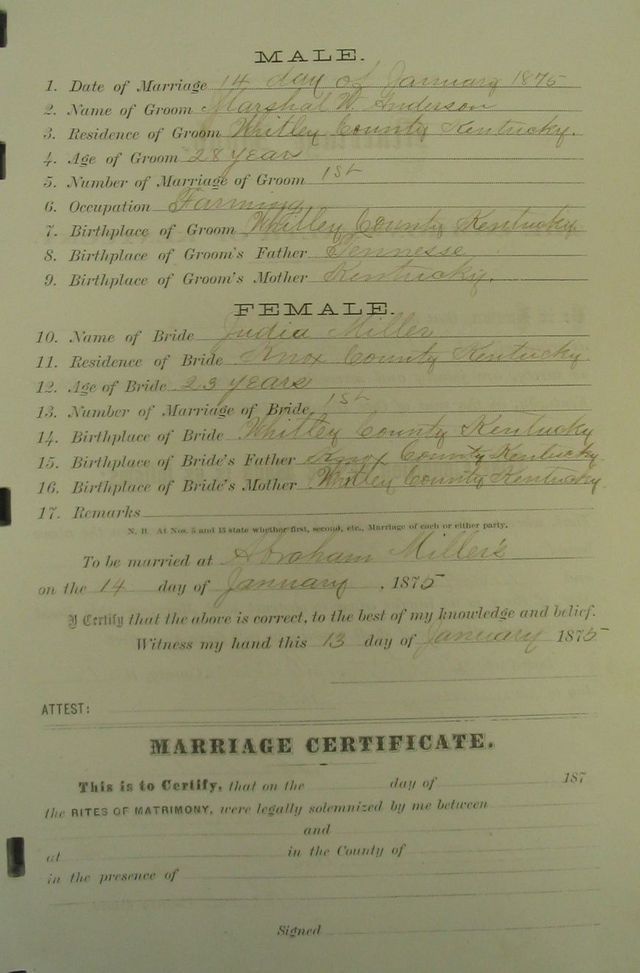 MALE.
1. Date of Marriage 14 day of January 1875
2. Name of Groom Marshal W. Anderson
3. Residence of Groom Whitley County Kentucky.
4. Age of Groom 28 years
5. Number of Marriage of Groom 1st
6. Occupation Farming
7. Birthplace of Groom Whitley County Kentucky
8. Birthplace of Groom's Father Tennesse
9. Birthplace of Groom's Mother Kentucky.
FEMALE.
10. Name of Bride Judia Miller
11. Residence of Bride Knox County Kentucky
12. Age of Bride 23 years
13. Number of Marriage of Bride 1st
14. Birthplace of Bride Whitley County Kentucky
15. Birthplace of Bride's Father Knox County Kentucky
16. Birthplace of Bride's Mother Whitley County Kentucky
17. Remarks
N. B. At Nos. 5 and 13 state whether first, second, etc., Marriage of each or either party.
To be married at Abraham Miller's
on the 14 day of January, 1875
I Certify that the above is correct, to the best of my knowledge and belief.
Witness my hand this 13 day of January 1875
ATTEST:
MARRIAGE CERTIFICATE.
This is to Certify, that on the day of 187
the RITES OF MATRIMONY, were legally solemnized by me between
and
at in the County of
in the presence of
Signed